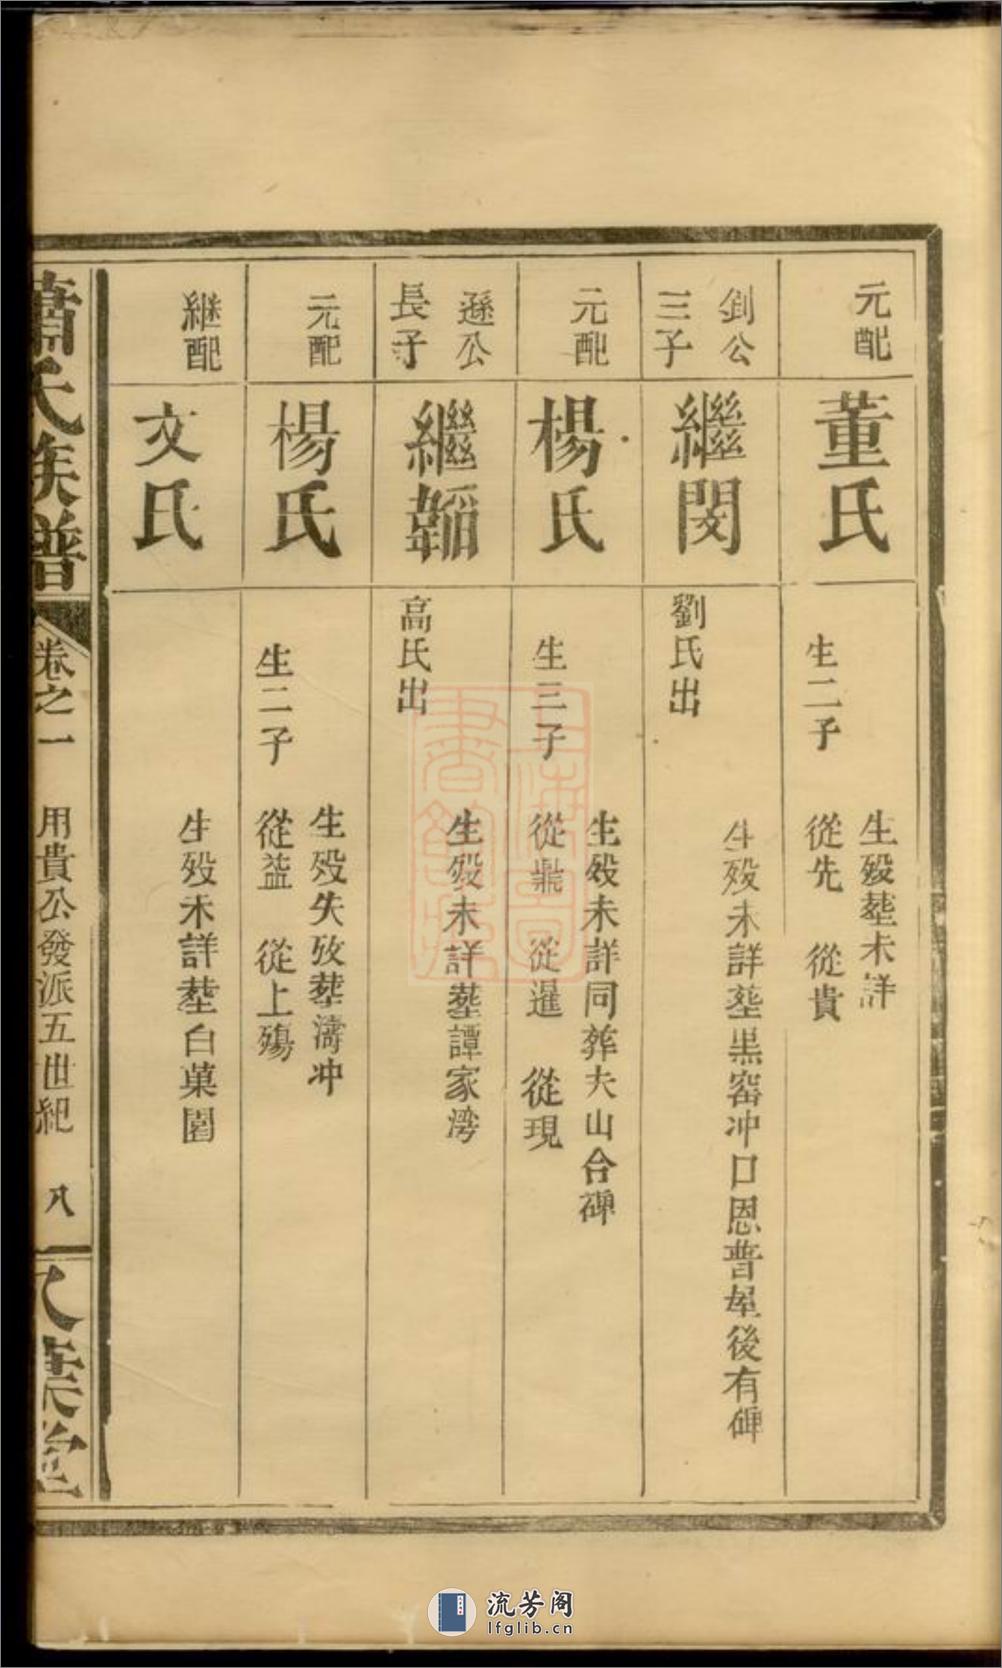 元配
董氏
生二子
生殁塟未詳
從先 從貴
釗公
三子
繼閔
劉氏出
生殁未詳塟黒窑冲口恩普屋後有碑
元配
楊氏
生三子
生殁未詳同葬夫山合碑
從鼎 從暹 從現
遜公
長子
繼韜
高氏出
生殁未詳塟譚家湾
元配
楊氏
生二子
生殁失攷塟濤冲
從益 從上殤
継配
文氏
生殁未詳塟白菓園
蕭氏族譜
卷之一
用貴公發派五世紀
八
八葉堂
上海圖
書館藏
流芳阁
lfglib.cn